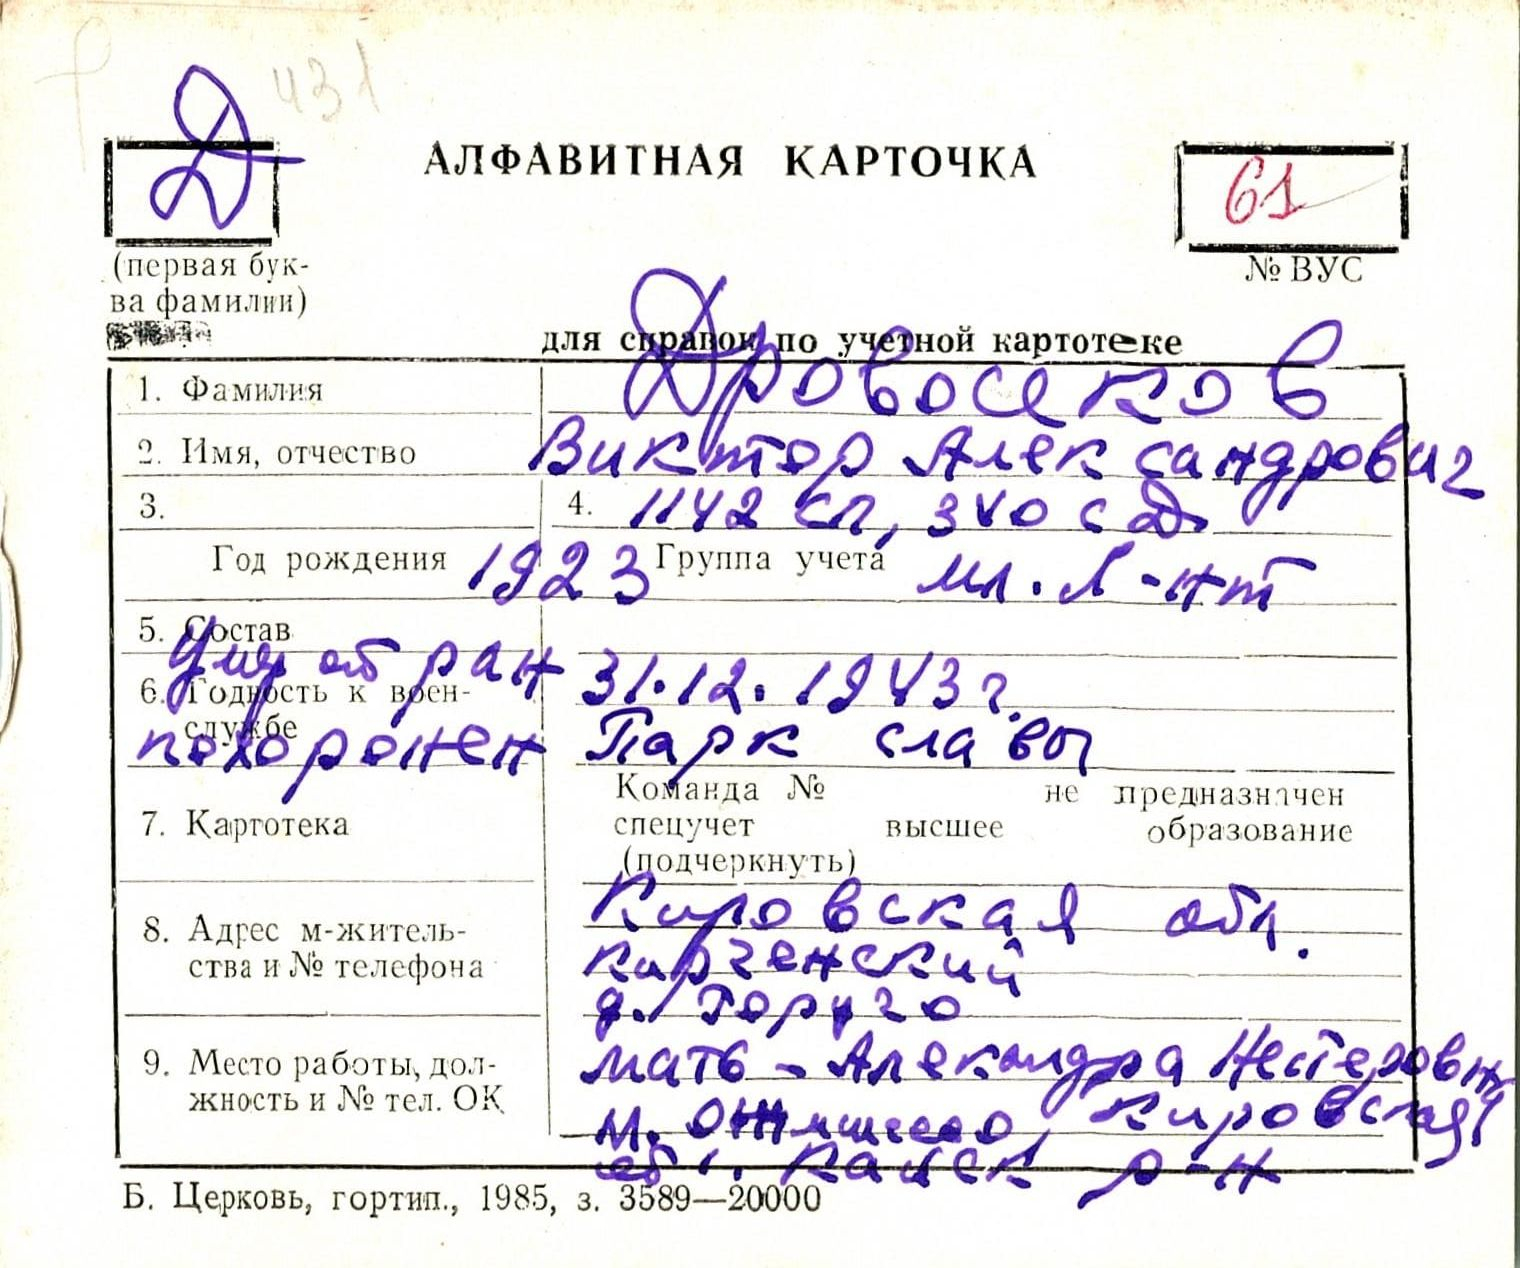 431
Д
АЛФАВИТНАЯ КАРТОЧКА
61
(первая бук-
ва фамилии)
№ ВУС
для справок по учетной картотеке
1. Фамилия Дровосеков
2. Имя, отчество Виктор Александрович
3. 4. 1142 сп, 340 сд
Год рождения 1923 Группа учета мл. л-нт
5. Состав
Умер от ран 31.12.1943 г.
6. Годность к воен-
службе
похоронен Парк славы
7. Картотека
Команда № не предназначен
спецучет высшее образование
(подчеркнуть)
8. Адрес м-житель-
ства и № телефона
Кировская обл.
д.
9. Место работы, дол-
жность и № тел. ОК
мать - Александра Нестеровна
Кировская
обл. Кайск р-н
Б. Церковь, гортип., 1985, з. 3589—20000